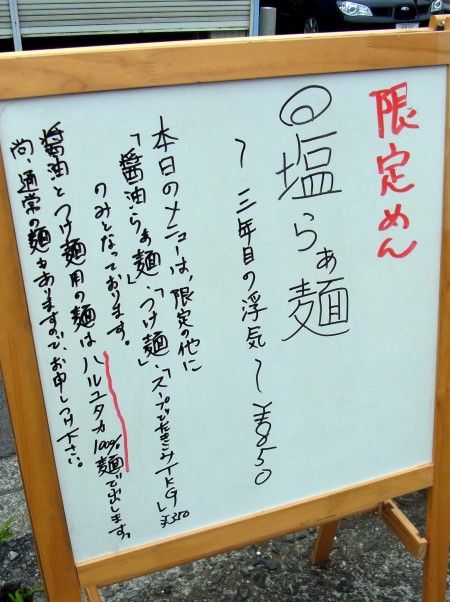 限定めん
◎塩らぁ麺
～三年目の浮気～¥850
本日のメニューは、限定の他に
「醤油らぁ麺」、「つけ麺」、「スープでたきこみTKG」¥350
のみとなっております。
醤油とつけ麺用の麺はハルユタカ100%麺で出します。
尚、通常の麺もありますので、お申しつけ下さい。